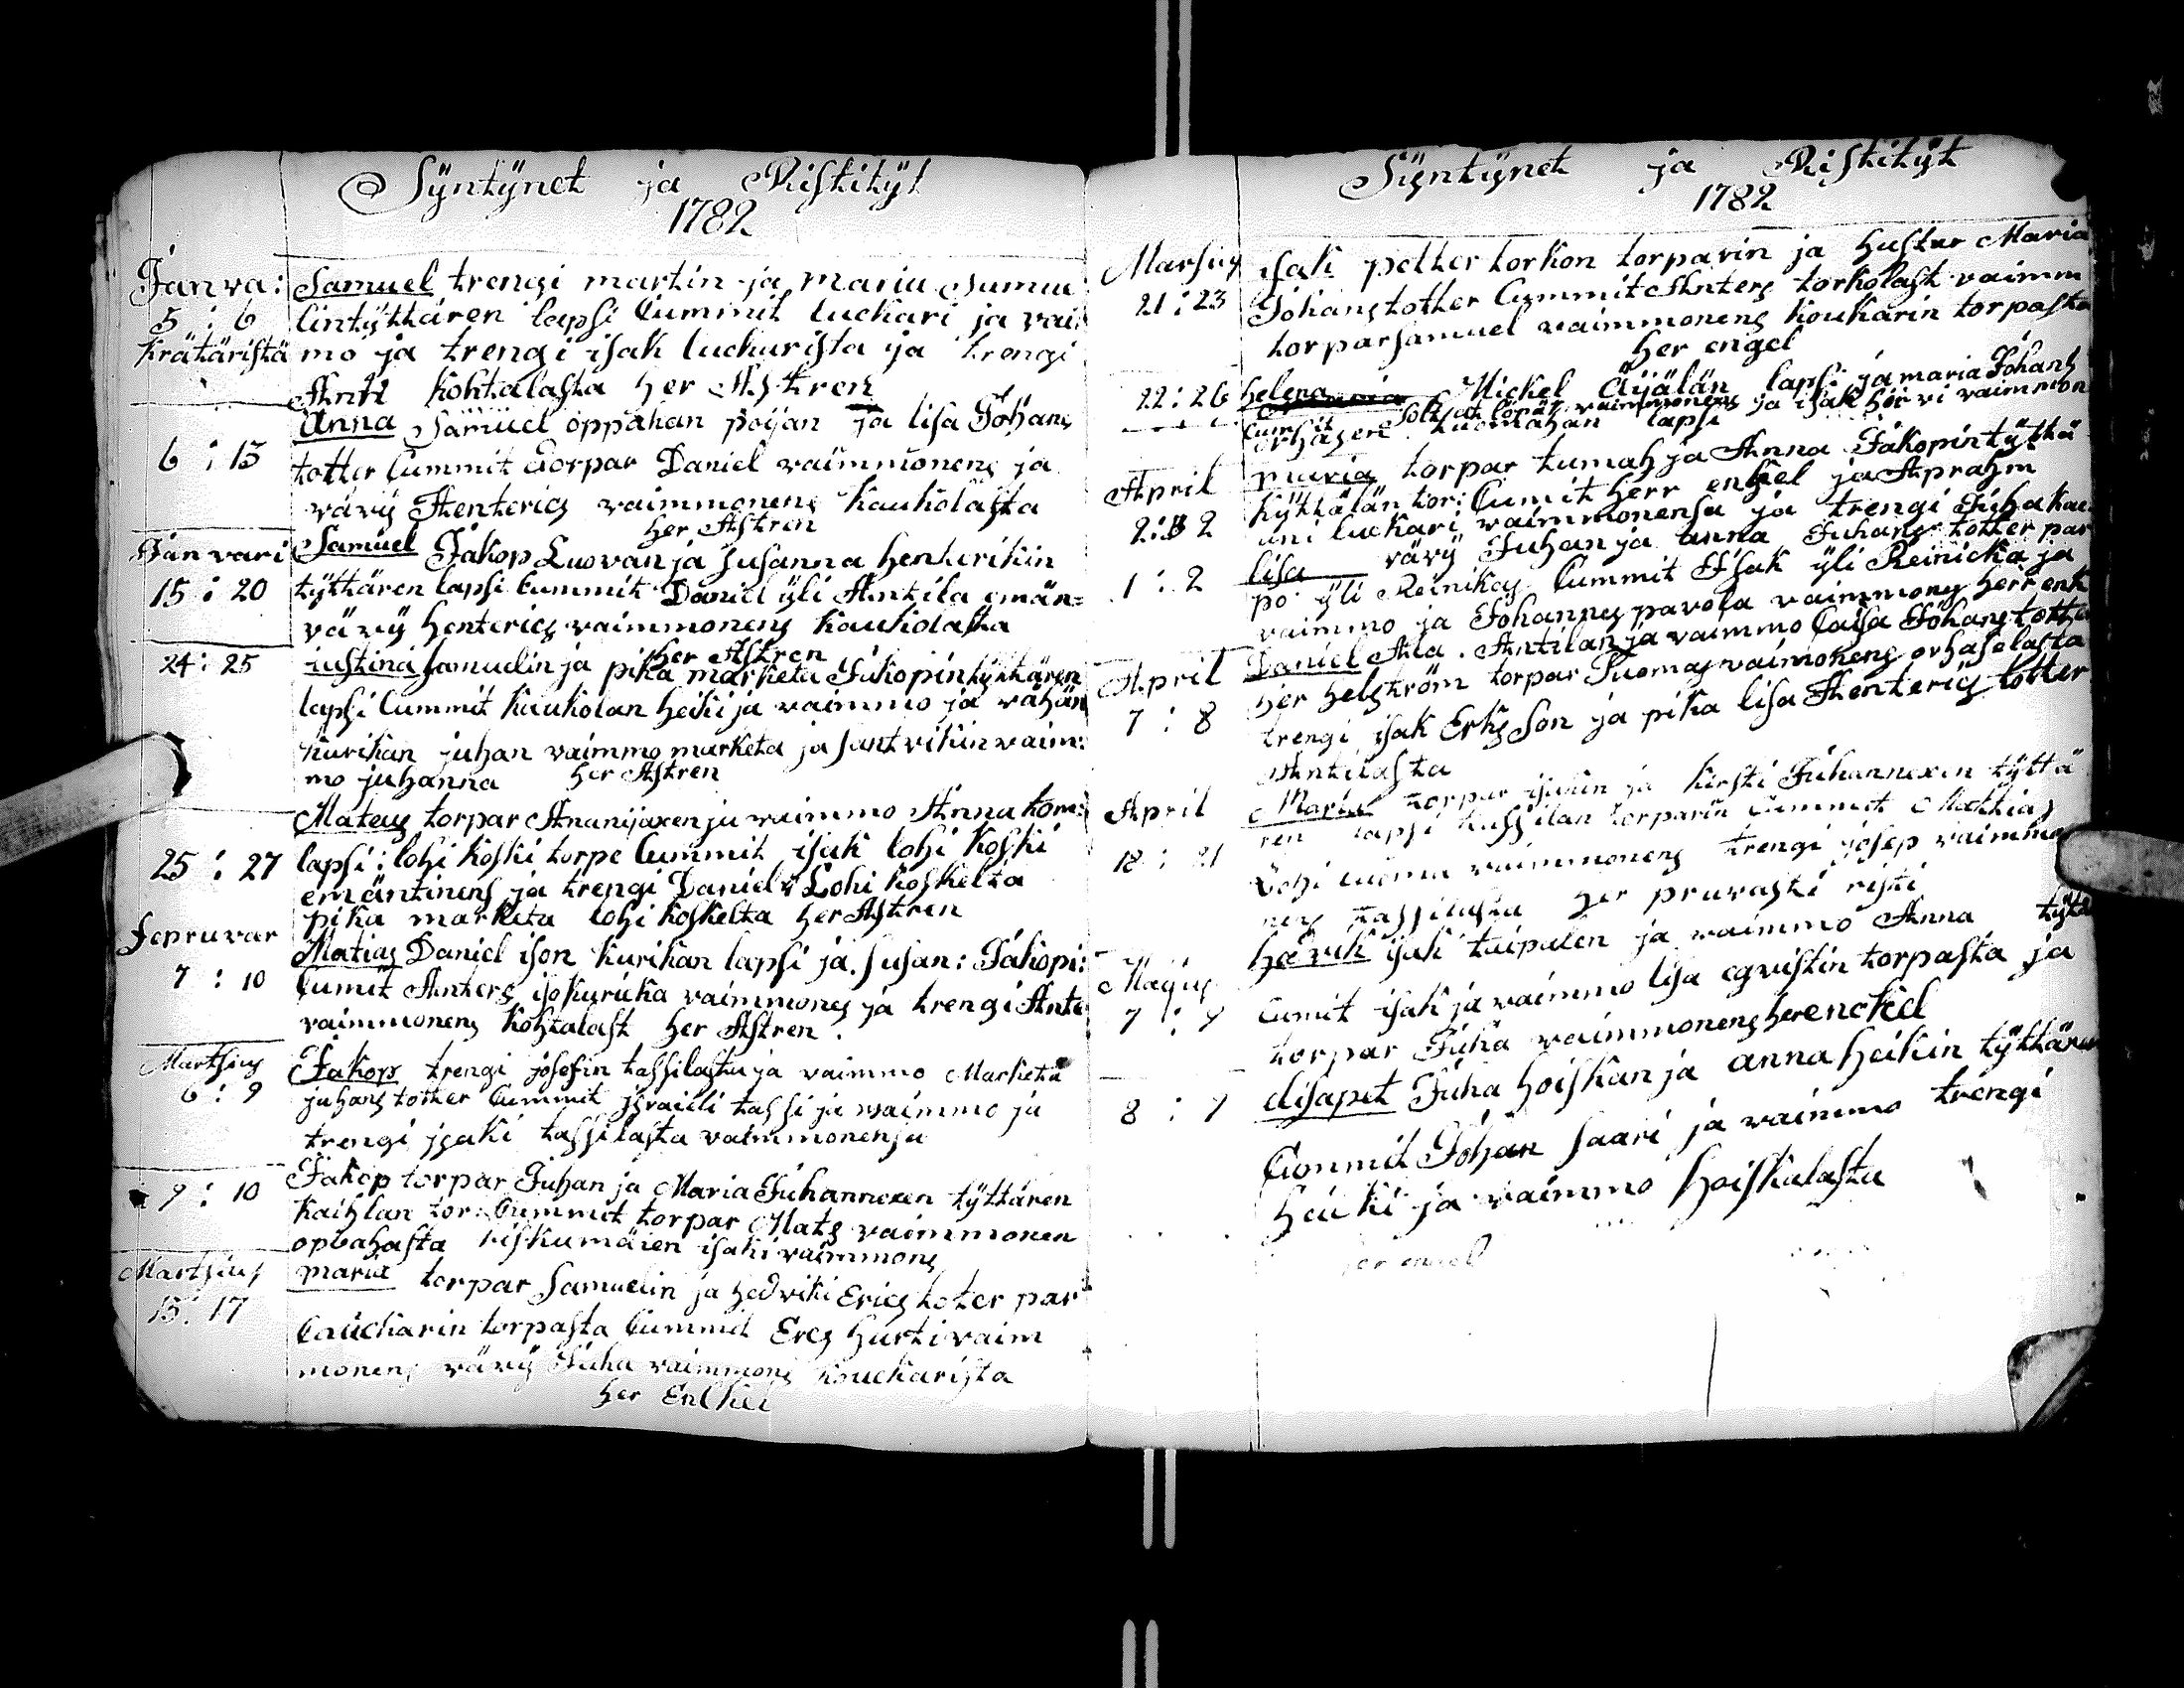 Syntynet ja Ristityt
1782
Janva: Samuel trengi martin ja maria Samue
5 : 6 lintyttären lapsi Cummit luckari ja vai
krätäristä mo ja trengi isak luckarista ja trengi
Antt kohtalasta her Astren
Anna Samuel oppahan pojan ja lisa Johans
6 : 13 totter Cummit torpar Daniel vaimmonens ja
vävy Henterics vaimmonens kaukolasta
her Astren
Janvari Samuel Jakop Luovan ja Susanna henterikin
15 : 20 tyttären lapsi Cummit Daniel yli Antila emän=
vävy henterics vaimmonens kaukolasta
her Astren
24 : 25 iustina Samuelin ja pika marketa Jakopin tyttären
lapsi Cummit kaukolan heiki ja vaimmo ja vähän
kurikan juhan vaimmo marketa ja santvikin vaim:
mo juhanna her Astren
Mateus torpar Ananijaxen ja vaimmo Anna
25 : 27 lapsi: lohi koski torpe Cummit isak lohi koski
emäntinens ja trengi Daniel Lohi koskelta
pika marketa lohi koskelta her Astren
fepruvar
Matias Daniel ison kurikan lapsi ja. susan: Jakopi:
7 : 10 Cumit Anters isokuricka vaimmons ja trengi Ante
vaimmonens kohtalast her Astren.
Martsius Jakop trengi josefin tassilasta ja vaimmo Marketa
6 : 9 juhans totter Cummit jsraieli tassi ja vaimmo ja
trengi jsaki tassilasta vaimmonensa
Jakop torpar Juhan ja Maria Juhannexen tyttären
9 : 10 kaihlan tor: Cummit torpar Mats vaimmonen
opbahasta kiskumäien isaki vaimmons
Martsius maria torpar Samuelin ja hedviki Erics toter par
15 : 17
Caückarin torpasta Cummit Ercs hurti vaim
monens vävy Juha vaimmons kouckarista
her Enckel
Syntynet ja Ristityt
1782
Marsius isak petter torkon torparin ja hustur Maria
21 : 23 Johans totter Cummit Anters torkolast vaimm
torparsamuel vaimmonens koukarin torpasta
her engel
22 : 26 helena Mickel Äijälän lapsi ja maria Johans
Cumit vaimmonens ja isak hirvi vaimmon
tuomahan lapsi
April maria torpar tumah ja Anna Jakopin tyttä
kyttälän tor: Cumit herr enkel ja Aprahm
2 : 2 uni luckari vaimmonensa ja trengi Juha kau
lisa vävy Juhan ja anna Juhans totter par
1 : 2 po yli Reinikas Cummit Isak yli Reinicka ja
vaimmo ja Johannes pavola vaimmons herr enk
April Daniel Ala. Antilan ja vaimmo Caisa Johans totte
her helström torpar Tuomas vaimonens orhaselasta
7 : 8 trengi isak Erks Son ja pika lisa Henterics totter
Antilasta
April Maria torpar isakin ja kirsti Juhannexen tyttä
ren lapsi tassilan torparin Cummit Mattias
18 : 21 Lohi luoma vaimmonens trengi josep vaimmo
nens tassilasta her pruvasti risti
hedvik isak taipalen ja vaimmo Anna tytä
Majus
7 : 9 Cumit isak ja vaimmo lisa eqvistin torpasta ja
torpar Juha vaimmonens her enckel
elisapet Juha hoiskan ja anna heikin tyttären
8 : 9
Cummit Johan saari ja vaimmo trengi
heicki ja vaimmo hoiskalasta